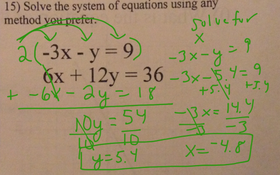 15) Solve the system of equations using any
method you prefer.
2(-3x - y = 9)
6x + 12y = 36
+ -6x - 2y = 18
10y = 54
10 10
y = 5.4
solve for
x
-3x - y = 9
-3x - 5.4 = 9
+5.4 +5.4
-3x = 14.4
-3 -3
x = -4.8